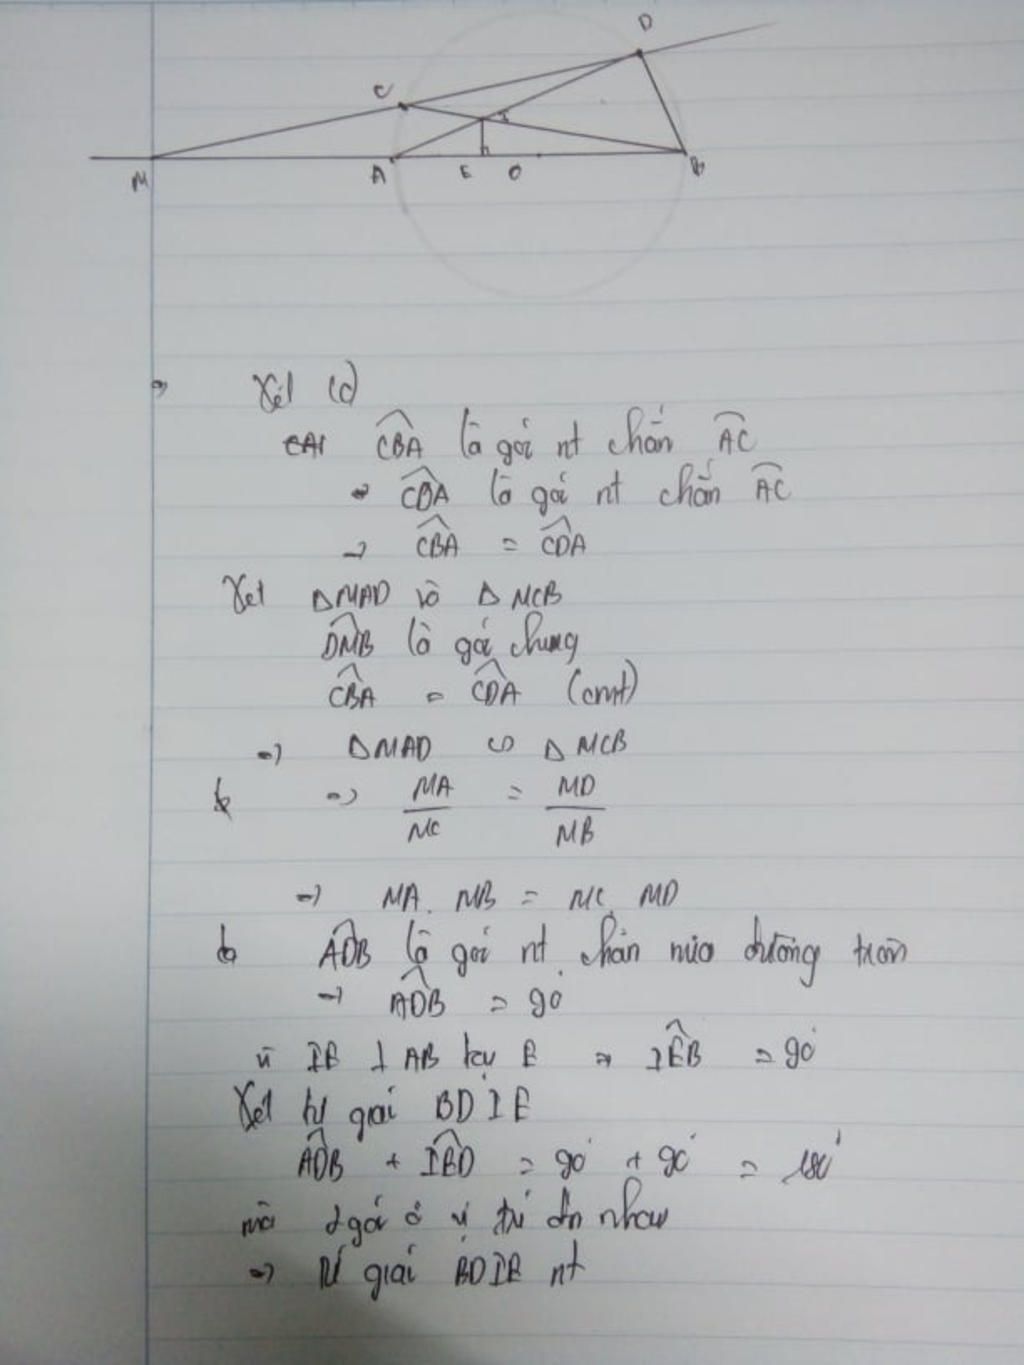 D
C
I
M A E O B
a) Xét (O)
CAI CBA là góc nt chắn AC
CDA là góc nt chắn AC
→ CBA = CDA
Xét ΔMAD và ΔMCB
DMB là góc chung
CBA = CDA (cmt)
=) ΔMAD ∽ ΔMCB
=) MA/MC = MD/MB
=) MA. MB = MC. MD
b ADB là góc nt chắn nửa đường tròn
=) ADB = 90°
vì IE ⊥ AB tại E => IEB = 90°
Xét tứ giác BDIE
ADB + IED = 90° + 90° = 180°
mà 2 góc ở vị trí đn nhau
=) tứ giác BDIE nt